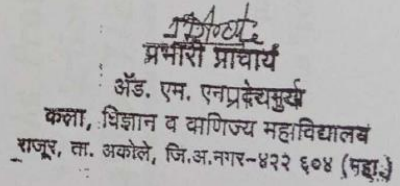 प्रभारी प्राचार्य
ॲड. एम. एन.
कला, विज्ञान व वाणिज्य महाविद्यालय
राजूर, ता. अकोले, जि.अ.नगर-४२२ ६०४ (महा.)